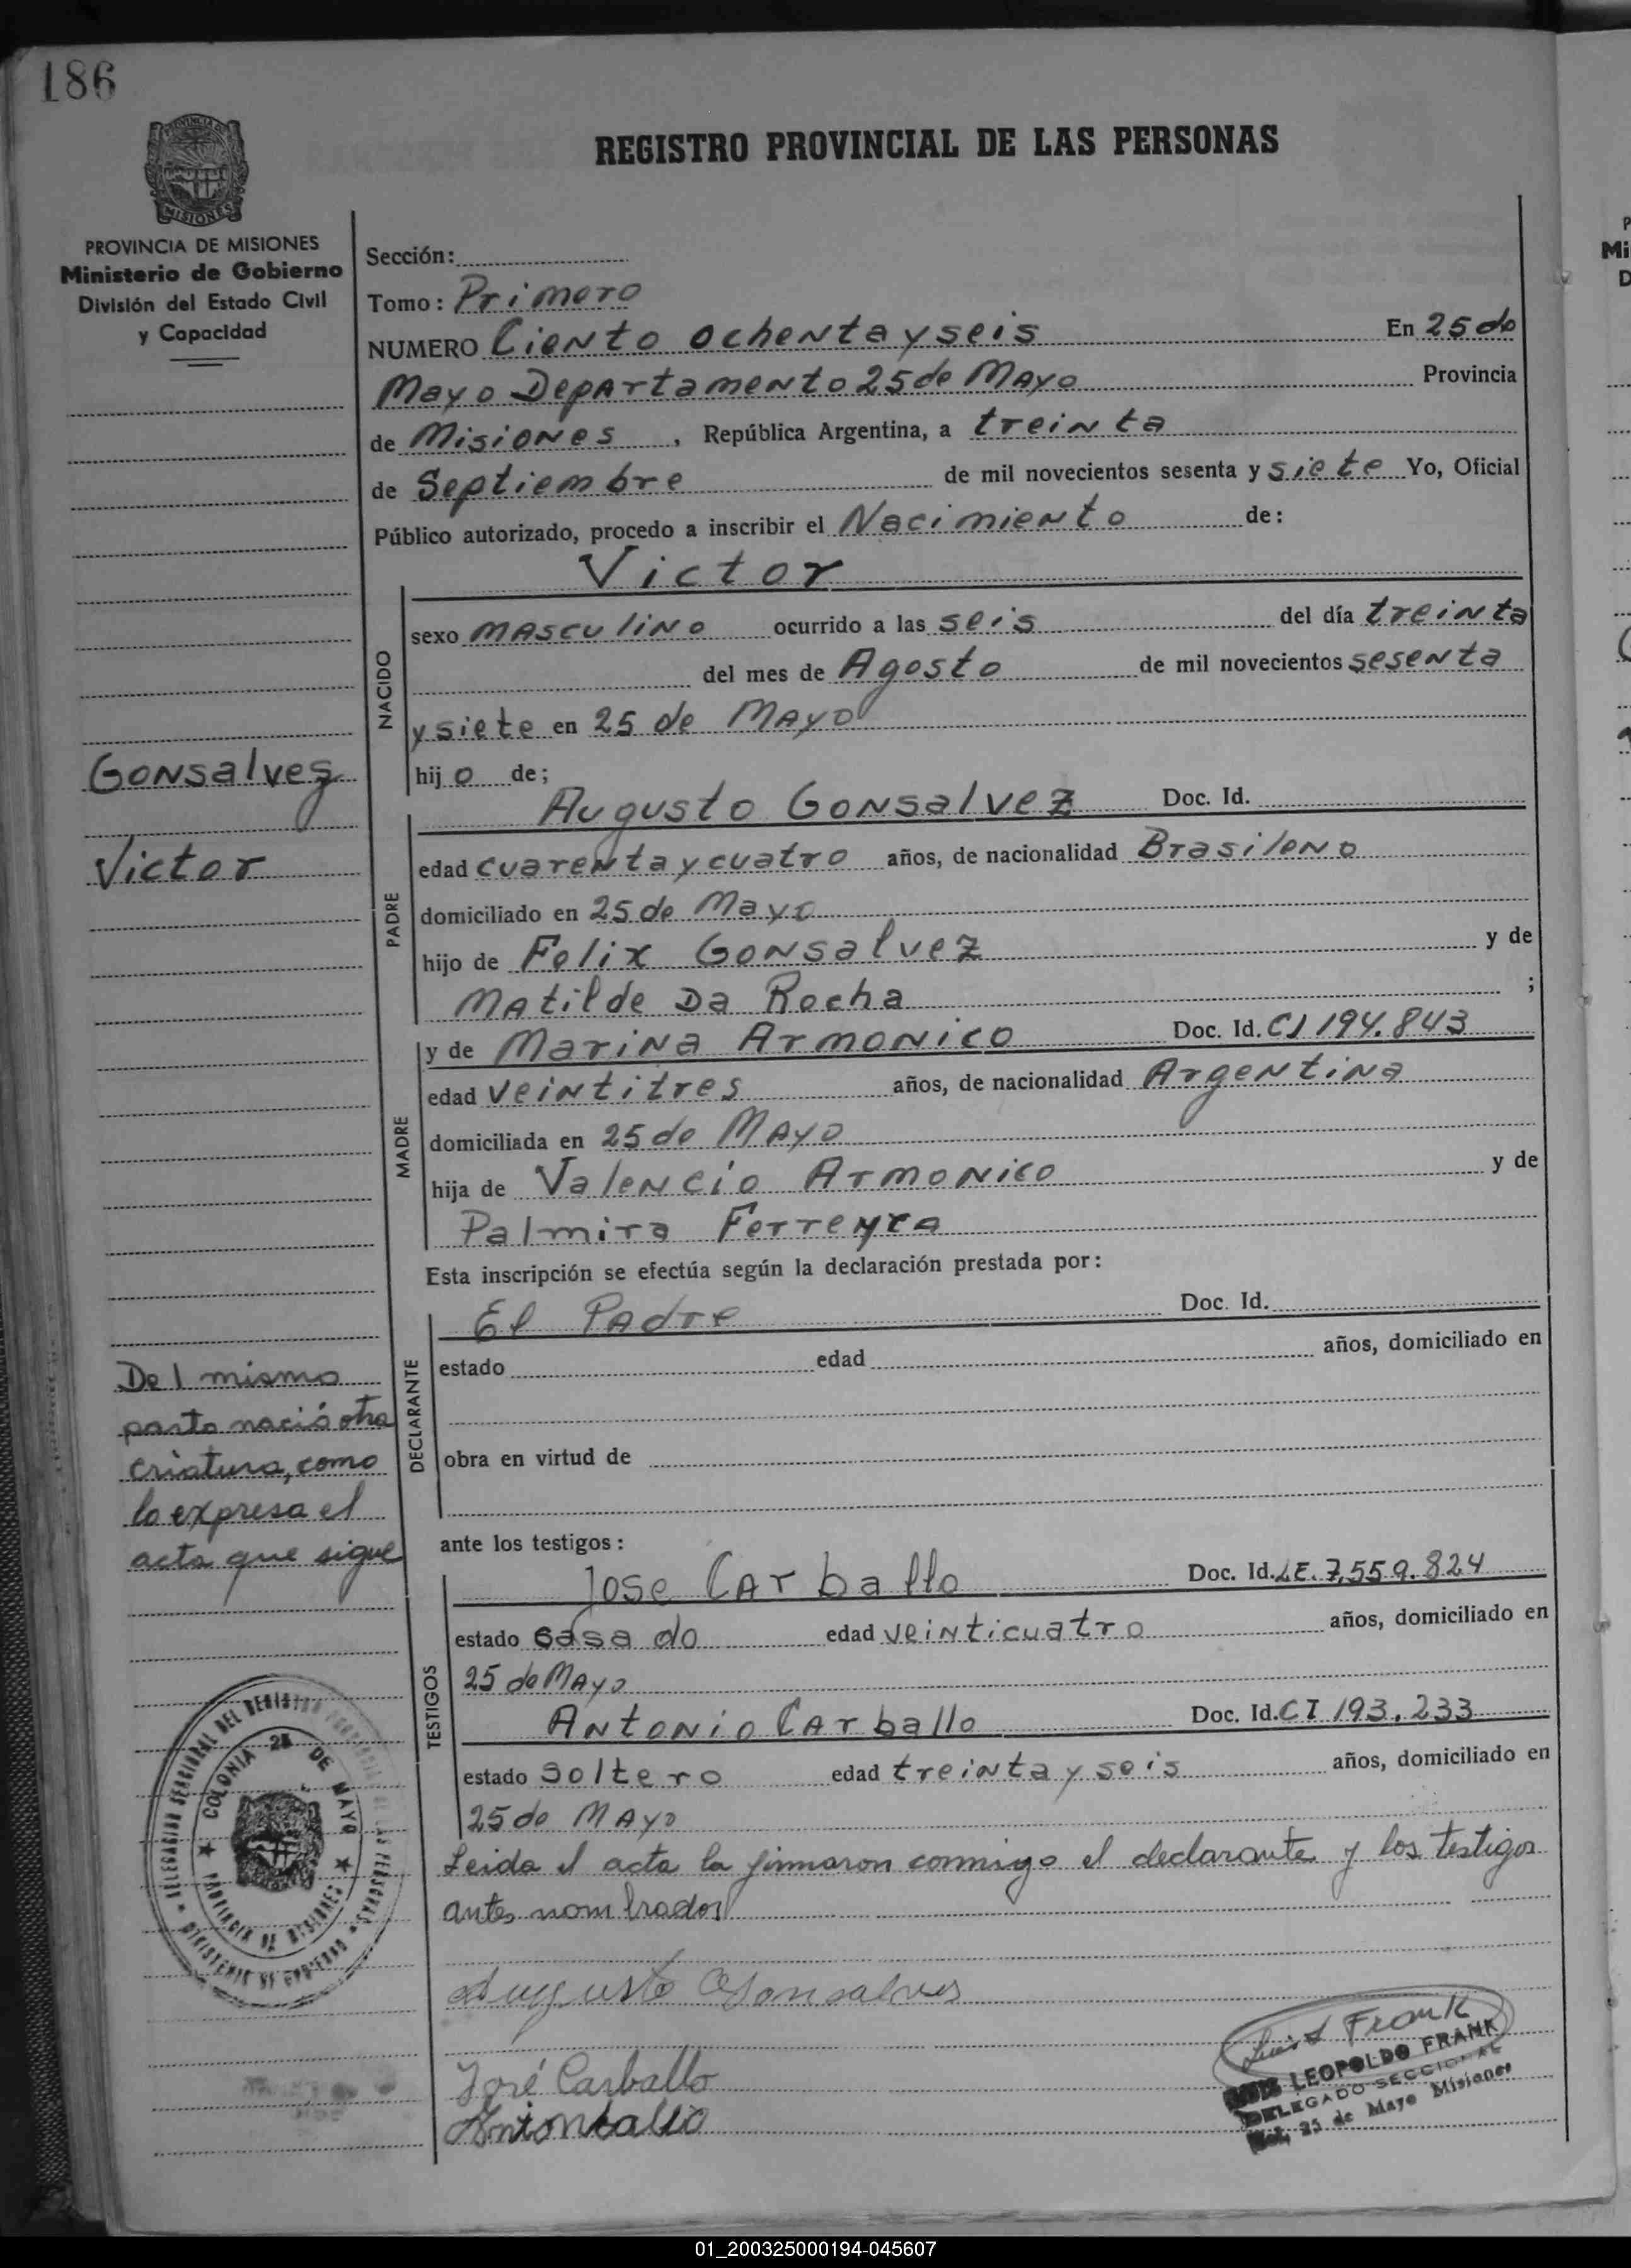 186
REGISTRO PROVINCIAL DE LAS PERSONAS
PROVINCIA DE
MISIONES
PROVINCIA DE MISIONES
Ministerio de Gobierno
División del Estado Civil
y Capacidad
Gonsalvez
Victor
Del mismo
parto nació otra
criatura, como
lo expresa el
acta que sigue
Sección:
Tomo: Primero
NUMERO Ciento ochenta y seis En 25 de
Mayo Departamento 25 de Mayo Provincia
de Misiones, República Argentina, a treinta
de Septiembre de mil novecientos sesenta y siete Yo, Oficial
Público autorizado, procedo a inscribir el Nacimiento de:
Victor
NACIDO
sexo masculino ocurrido a las seis del día treinta
del mes de Agosto de mil novecientos sesenta
y siete en 25 de Mayo
hijo de;
PADRE
Augusto Gonsalvez Doc. Id.
edad cuarenta y cuatro años, de nacionalidad Brasileno
domiciliado en 25 de Mayo
hijo de Felix Gonsalvez y de
Matilde Da Rocha ;
MADRE
y de Marina Armonico Doc. Id. CI 194.843
edad veintitres años, de nacionalidad Argentina
domiciliada en 25 de Mayo
hija de Valencio Armonico y de
Palmira Ferreyra
Esta inscripción se efectúa según la declaración prestada por:
DECLARANTE
El Padre Doc. Id.
estado edad años, domiciliado en
obra en virtud de
ante los testigos:
TESTIGOS
Jose Carballo Doc. Id. LE. 7,559.824
estado casado edad veinticuatro años, domiciliado en
25 de Mayo
Antonio Carballo Doc. Id. CI 193.233
estado soltero edad treinta y seis años, domiciliado en
25 de Mayo
Leida el acta la firmaron conmigo el declarante y los testigos
antes nombrados
Augusto Gonsalves
José Carballo
Luis L Frank
LUIS LEOPOLDO FRANK
DELEGADO SECCIONAL
Col. 25 de Mayo Misiones
DELEGACION SECCIONAL DEL REGISTRO PROVINCIAL DE LAS PERSONAS
MINISTERIO DE GOBIERNO
COLONIA 25 DE MAYO
PROVINCIA DE MISIONES
01_200325000194-045607